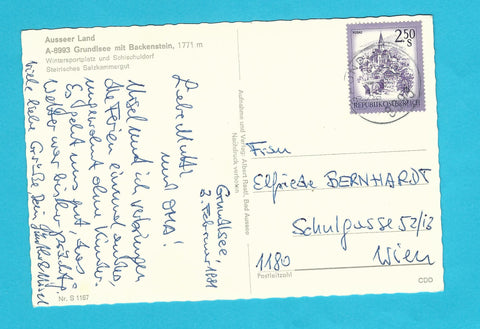 Ausseer Land
A-8993 Grundlsee mit Backenstein, 1771 m
Wintersportplatz und Schischuldorf
Steirisches Salzkammergut
Grundlsee,
3. Februar 1981
Liebe Mutti
und OMA!
Misel und ich verbringen
die Ferien einmal anders,
ungewohnt ohne Kinder.
Es geht uns gut, das
Wetter war bisher prächtig.
Viele liebe Grüße, Dein Günther & Misel
Nr. S 1187
Aufnahme und Verlag: Albert Rastl, Bad Aussee
Nachdruck verboten
2.50
S
MURAU
REPUBLIK ÖSTERREICH
Frau
Elfriede BERNHARDT
Schulgasse 52/13
1180 Wien
Postleitzahl
CDD